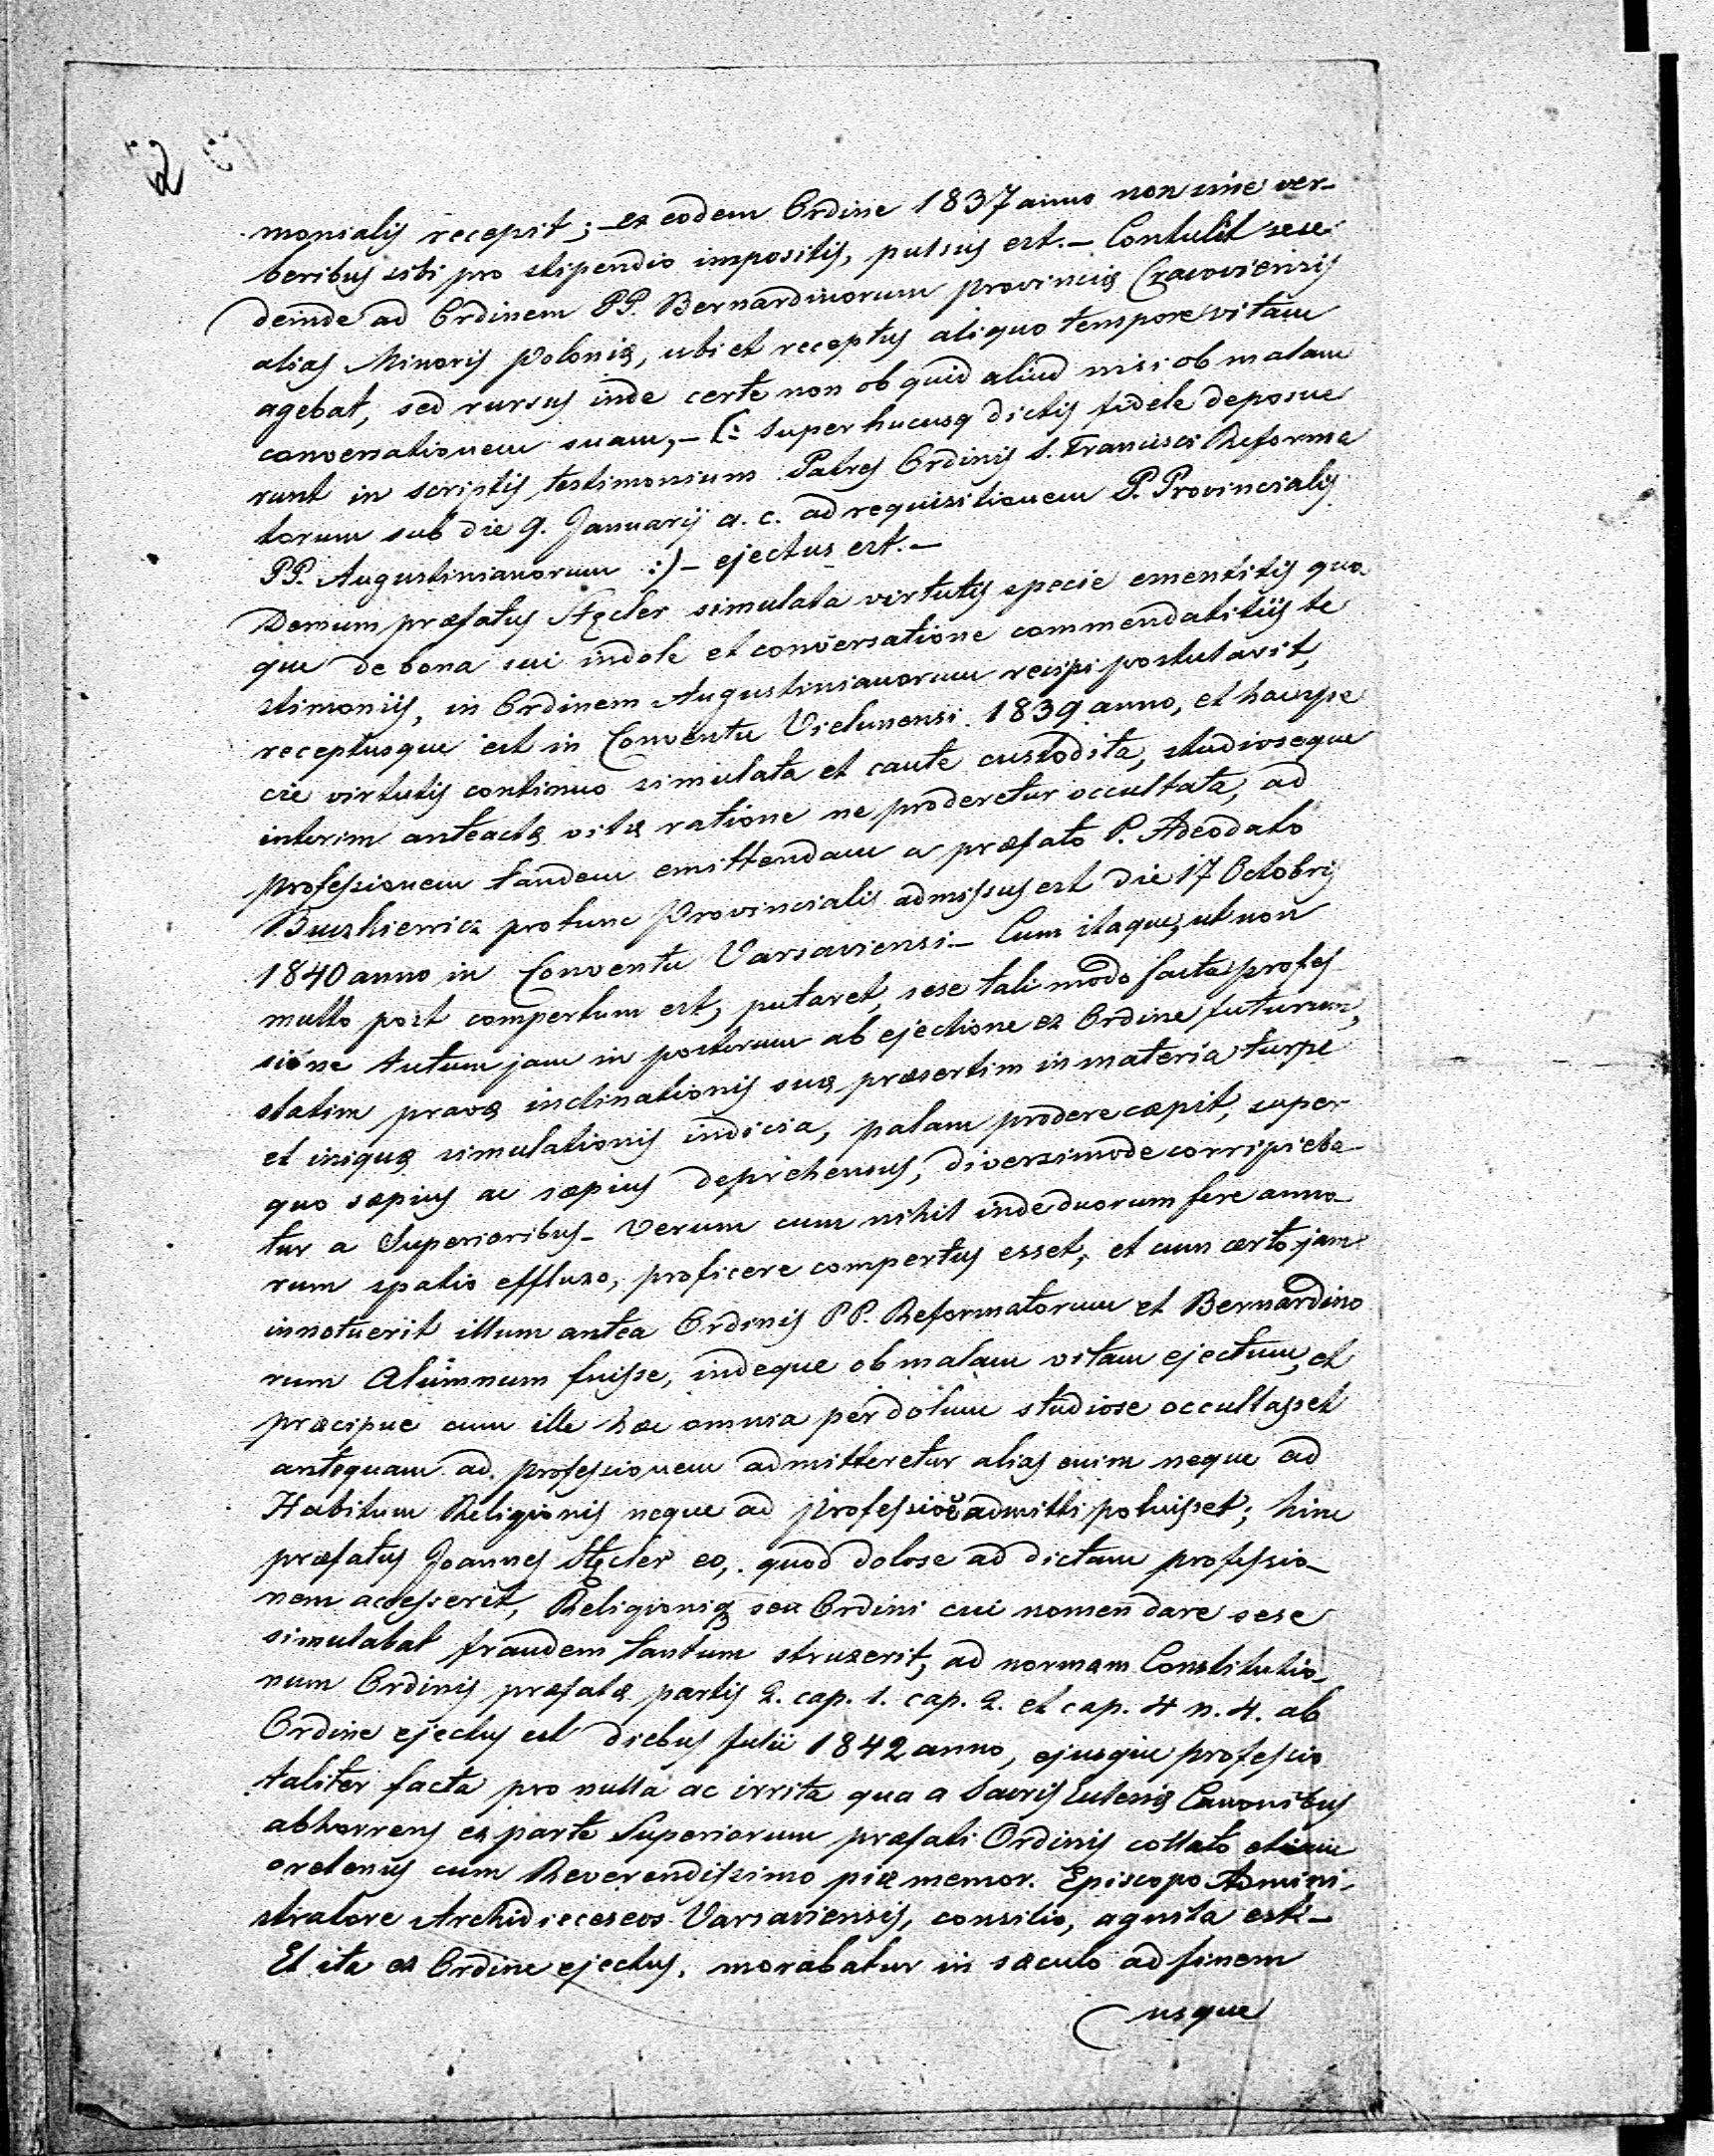 monialis recepit; – ex eodem Ordine 1837 anno non sine ver-
beribus sibi pro stipendio impositis, pulsus est. – Contulit sese
deinde ad Ordinem PP. Bernardinorum provinciæ Cracoviensis
alias Minoris Poloniæ, ubi et receptus aliquo tempore vitam
agebat, sed rursus inde certe non ob quid aliud nisi ob malam
conversationem suam, – (: super hucusq dictis fidele deposue
runt in scriptis testimonium Patres Ordinis S. Francisci Reforma
torum sub die 9. Januarij a. c. ad requisitionem P. Provincialis
PP. Augustinianorum :) – ejectus est. –
Demum præfatus Stęcler simulata virtutis specie ementitis qua
que de bona sui indole et conversatione commendatitiis te
stimoniis, in Ordinem Augustinianorum recipi postulavit,
receptusque est in Conventu Vielunensi 1839 anno, et hac spe
cie virtutis continuo simulata et caute custodita, studioseque
interim anteactæ vitæ ratione ne proderetur occultata, ad
professionem tandem emittendam a præfato P. Adeodato
protunc Provinciali admissus est die 17 Octobris
1840 anno in Conventu Varsaviensi – Cum itaque, ut non
multo post compertum est, putaret, sese tali modo facta profes
sione tutum jam in posterum ab ejectione ex Ordine futurum,
statim pravæ inclinationis suæ præsertim in materia turpe
et iniquæ simulationis indicia, palam prodere cæpit, super
quo sæpius ac sæpius deprehensus, diversimode corripieba
tur a Superioribus – Verum cum nihil inde duorum fere anno
rum spatio effluxo, proficere compertus esset, et cum certo jam
innotuerit illum antea Ordinis PP. Reformatorum et Bernardino
rum Alumnum fuisse, indeque ob malam vitam ejectum, et
præcipue cum ille hæc omnia per dolum studiose occultasset
antequam ad professionem admitteretur alias enim neque ad
Habitum Religionis neque ad professioē admitti potuisset; hinc
præfatus Joannes Stęcler eo, quod dolose ad dictam professio-
nem accesserit, Religioniq seu Ordini cui nomen dare sese
simulabat fraudem tantum struxerit, ad normam Constitutio-
num Ordinis præfatæ partis 2. cap. 1. cap. 2. et cap. 4 n. 4. ab
Ordine ejectus est diebus Julii 1842 anno, ejusque professio
taliter facta pro nulla ac irrita qua a Sacris Eclesiæ Canonibus
abhorrens ex parte Superiorum præfati Ordinis collato etiam
oretenus cum Reverendissimo piæ memor. Episcopo Admini-
stratore Archidieceseos Varsaviensis, consilio, agnita est. –
Et ita ex Ordine ejectus, morabatur in sæculo ad finem
usque